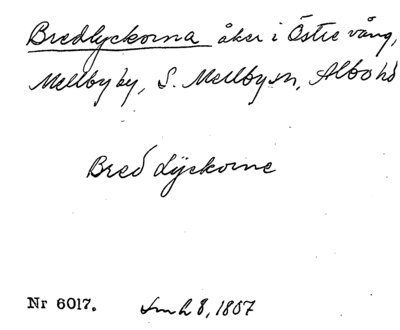 Bredlyckorna åker i Östre vång,
Mellby by, S. Mellby sn, Albo hd
Bred Lÿckorne
Nr 6017. Lmh 8, 1807